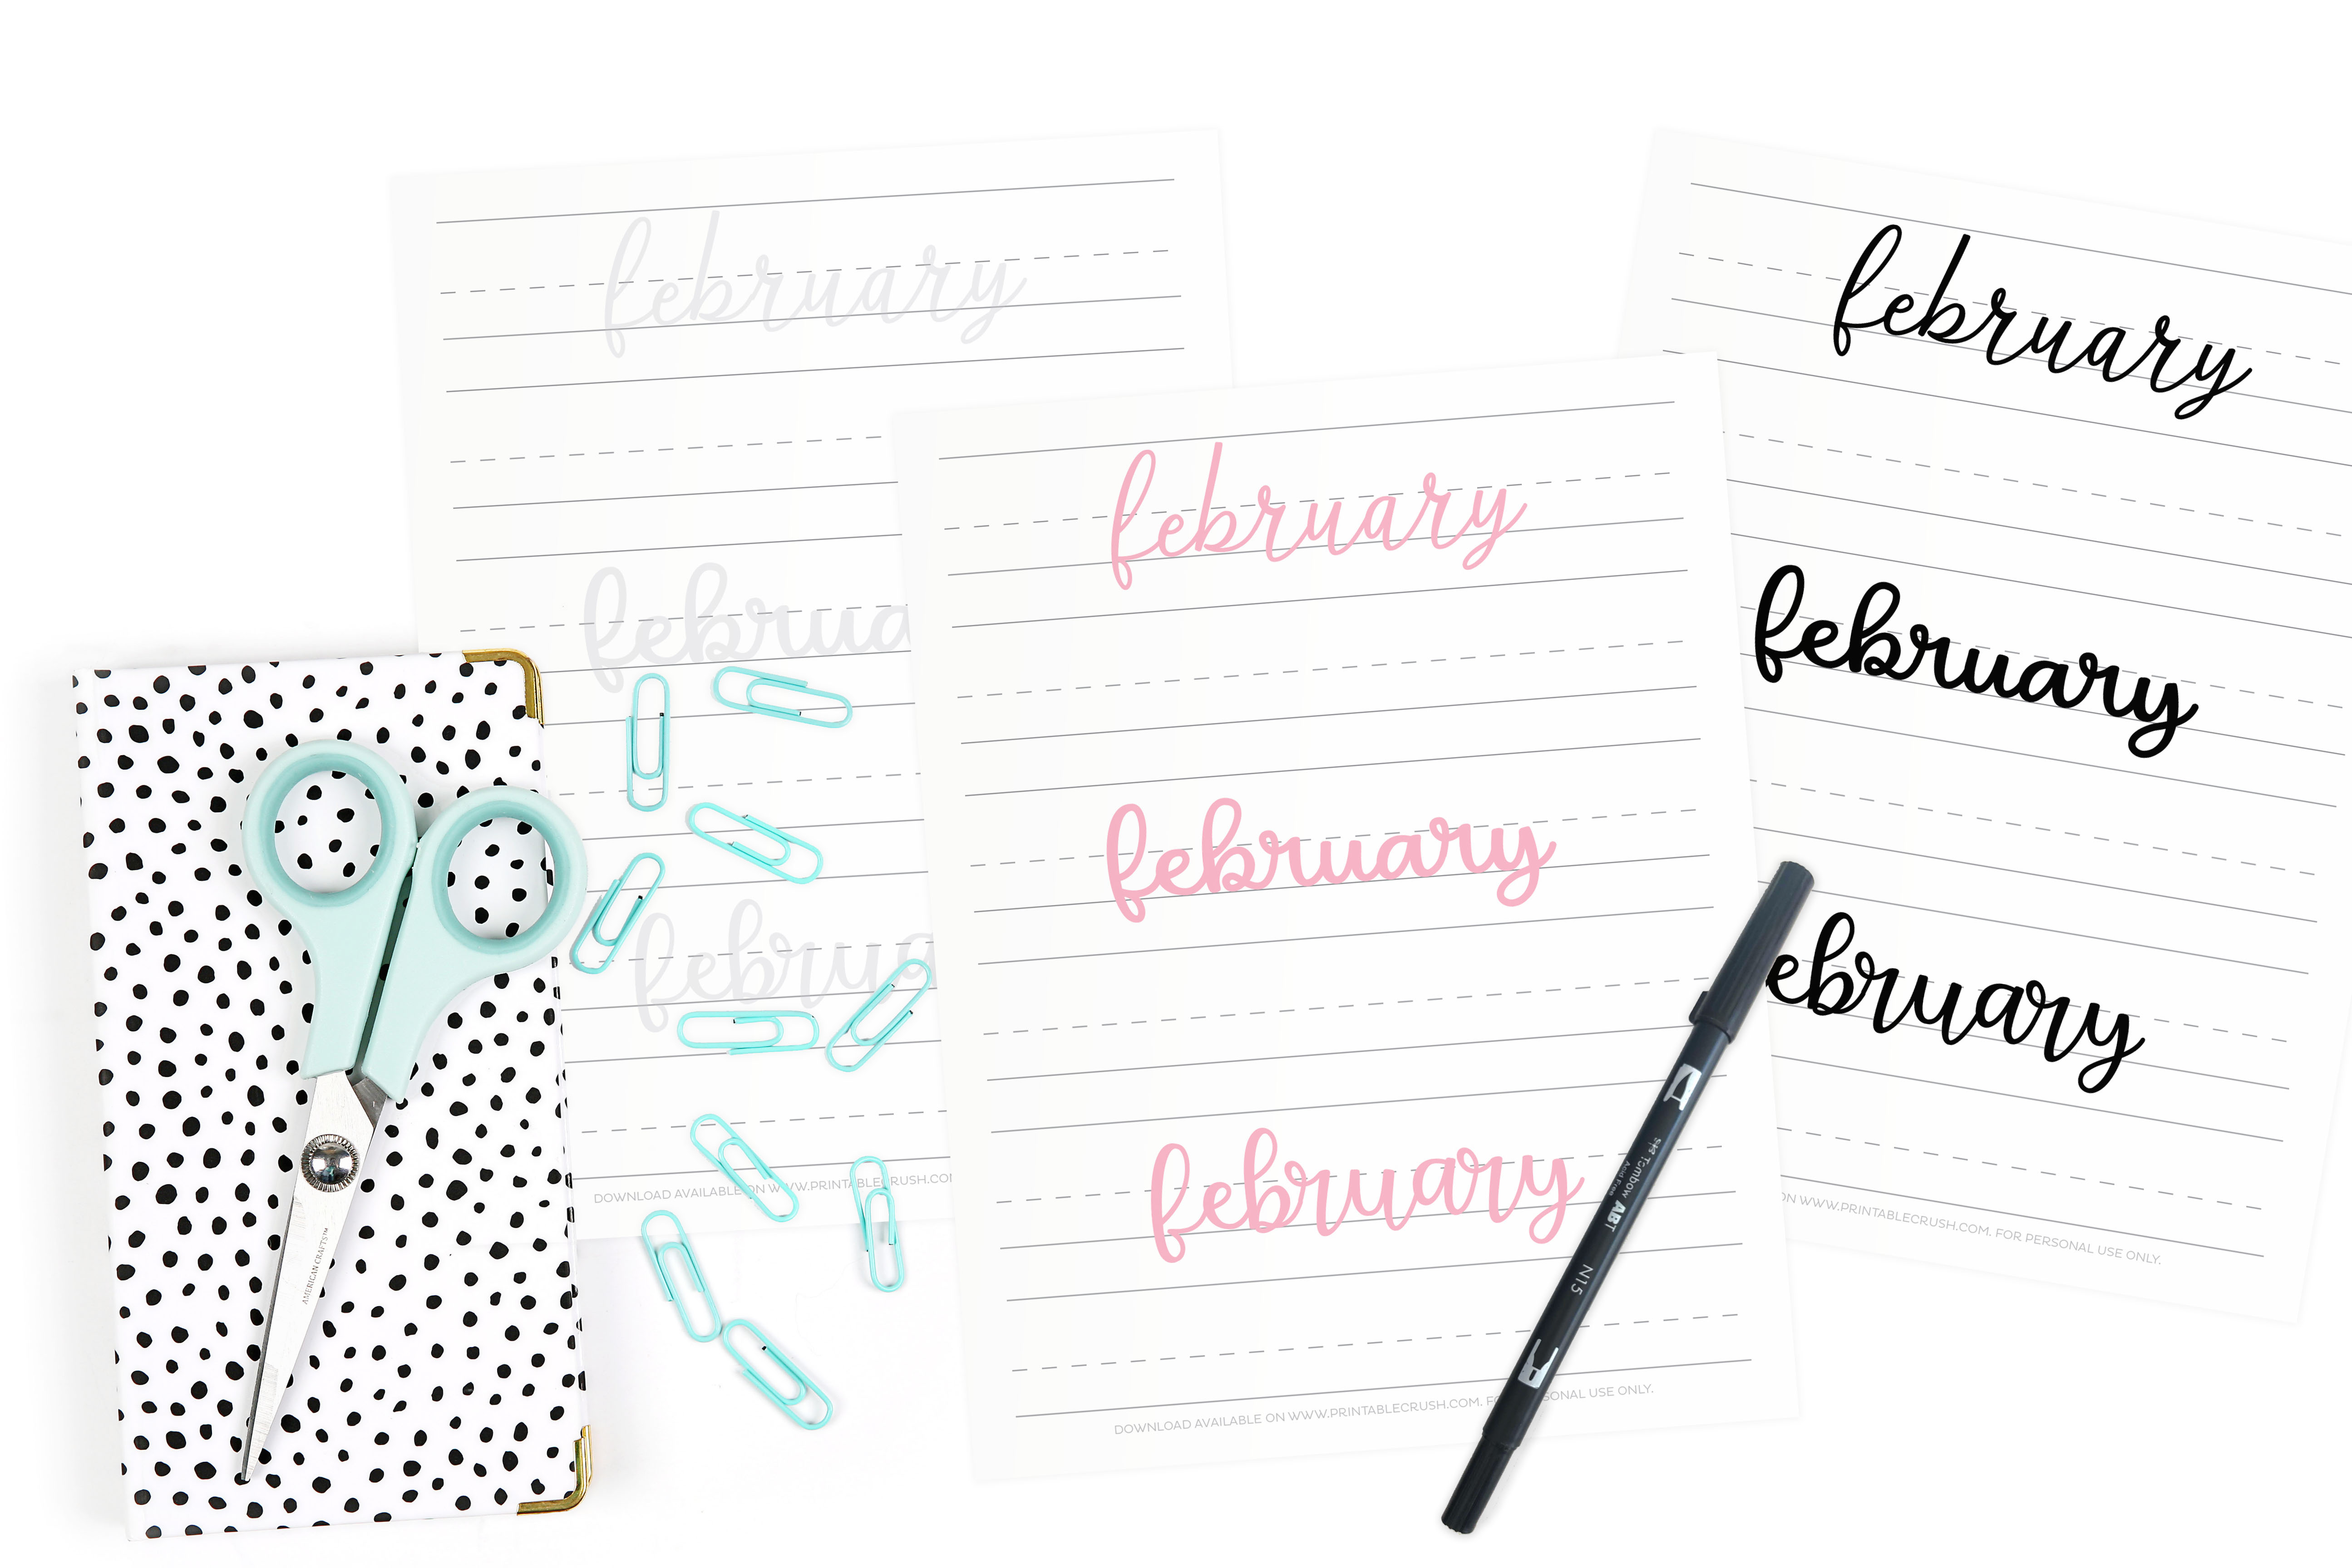 february
februa
februa
DOWNLOAD AVAILABLE ON WWW.PRINTABLECRUSH.CO
february
february
february
DOWNLOAD AVAILABLE ON WWW.PRINTABLECRUSH.COM. FO SONAL USE ONLY.
february
february
ebruary
ON WWW.PRINTABLECRUSH.COM. FOR PERSONAL USE ONLY.
AMERICAN CRAFTS™
Tombow ABT
Acid Free
N15